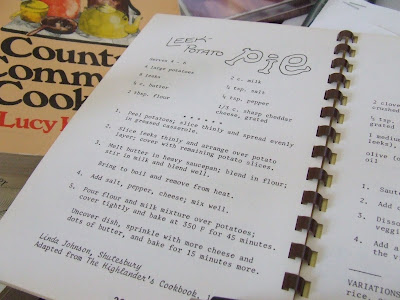 Count
Comm
Cook
Lucy
LEEK-
POTATO PIE
Serves 4 - 6
6 large potatoes
leeks
c. butter
2 tbsp. flour
2 c. milk
tsp. salt
tsp. pepper
1/3 c. sharp cheddar
cheese, grated
1. Peel potatoes; slice thinly and spread evenly
in greased casserole.
2. Slice leeks thinly and arrange over potato
layer; cover with remaining potato slices.
3. Melt butter in heavy saucepan; blend in flour;
stir in milk and blend well.
Bring to boil and remove from heat.
4. Add salt, pepper, cheese; mix well.
5. Pour flour and milk mixture over potatoes;
cover tightly and bake at 350 F for 45 minutes.
Uncover dish, sprinkle with more cheese and
dots of butter, and bake for 15 minutes more.
Linda Johnson, Shutesbury
Adapted from The Highlander's Cookbook,
2 clove
crushed
tsp.
grated
1 medium
leeks),
olive
oil
1. Saute
2. Add
3. Disso
veggi
4. Add a
the vi
VARIATIONS
rice,